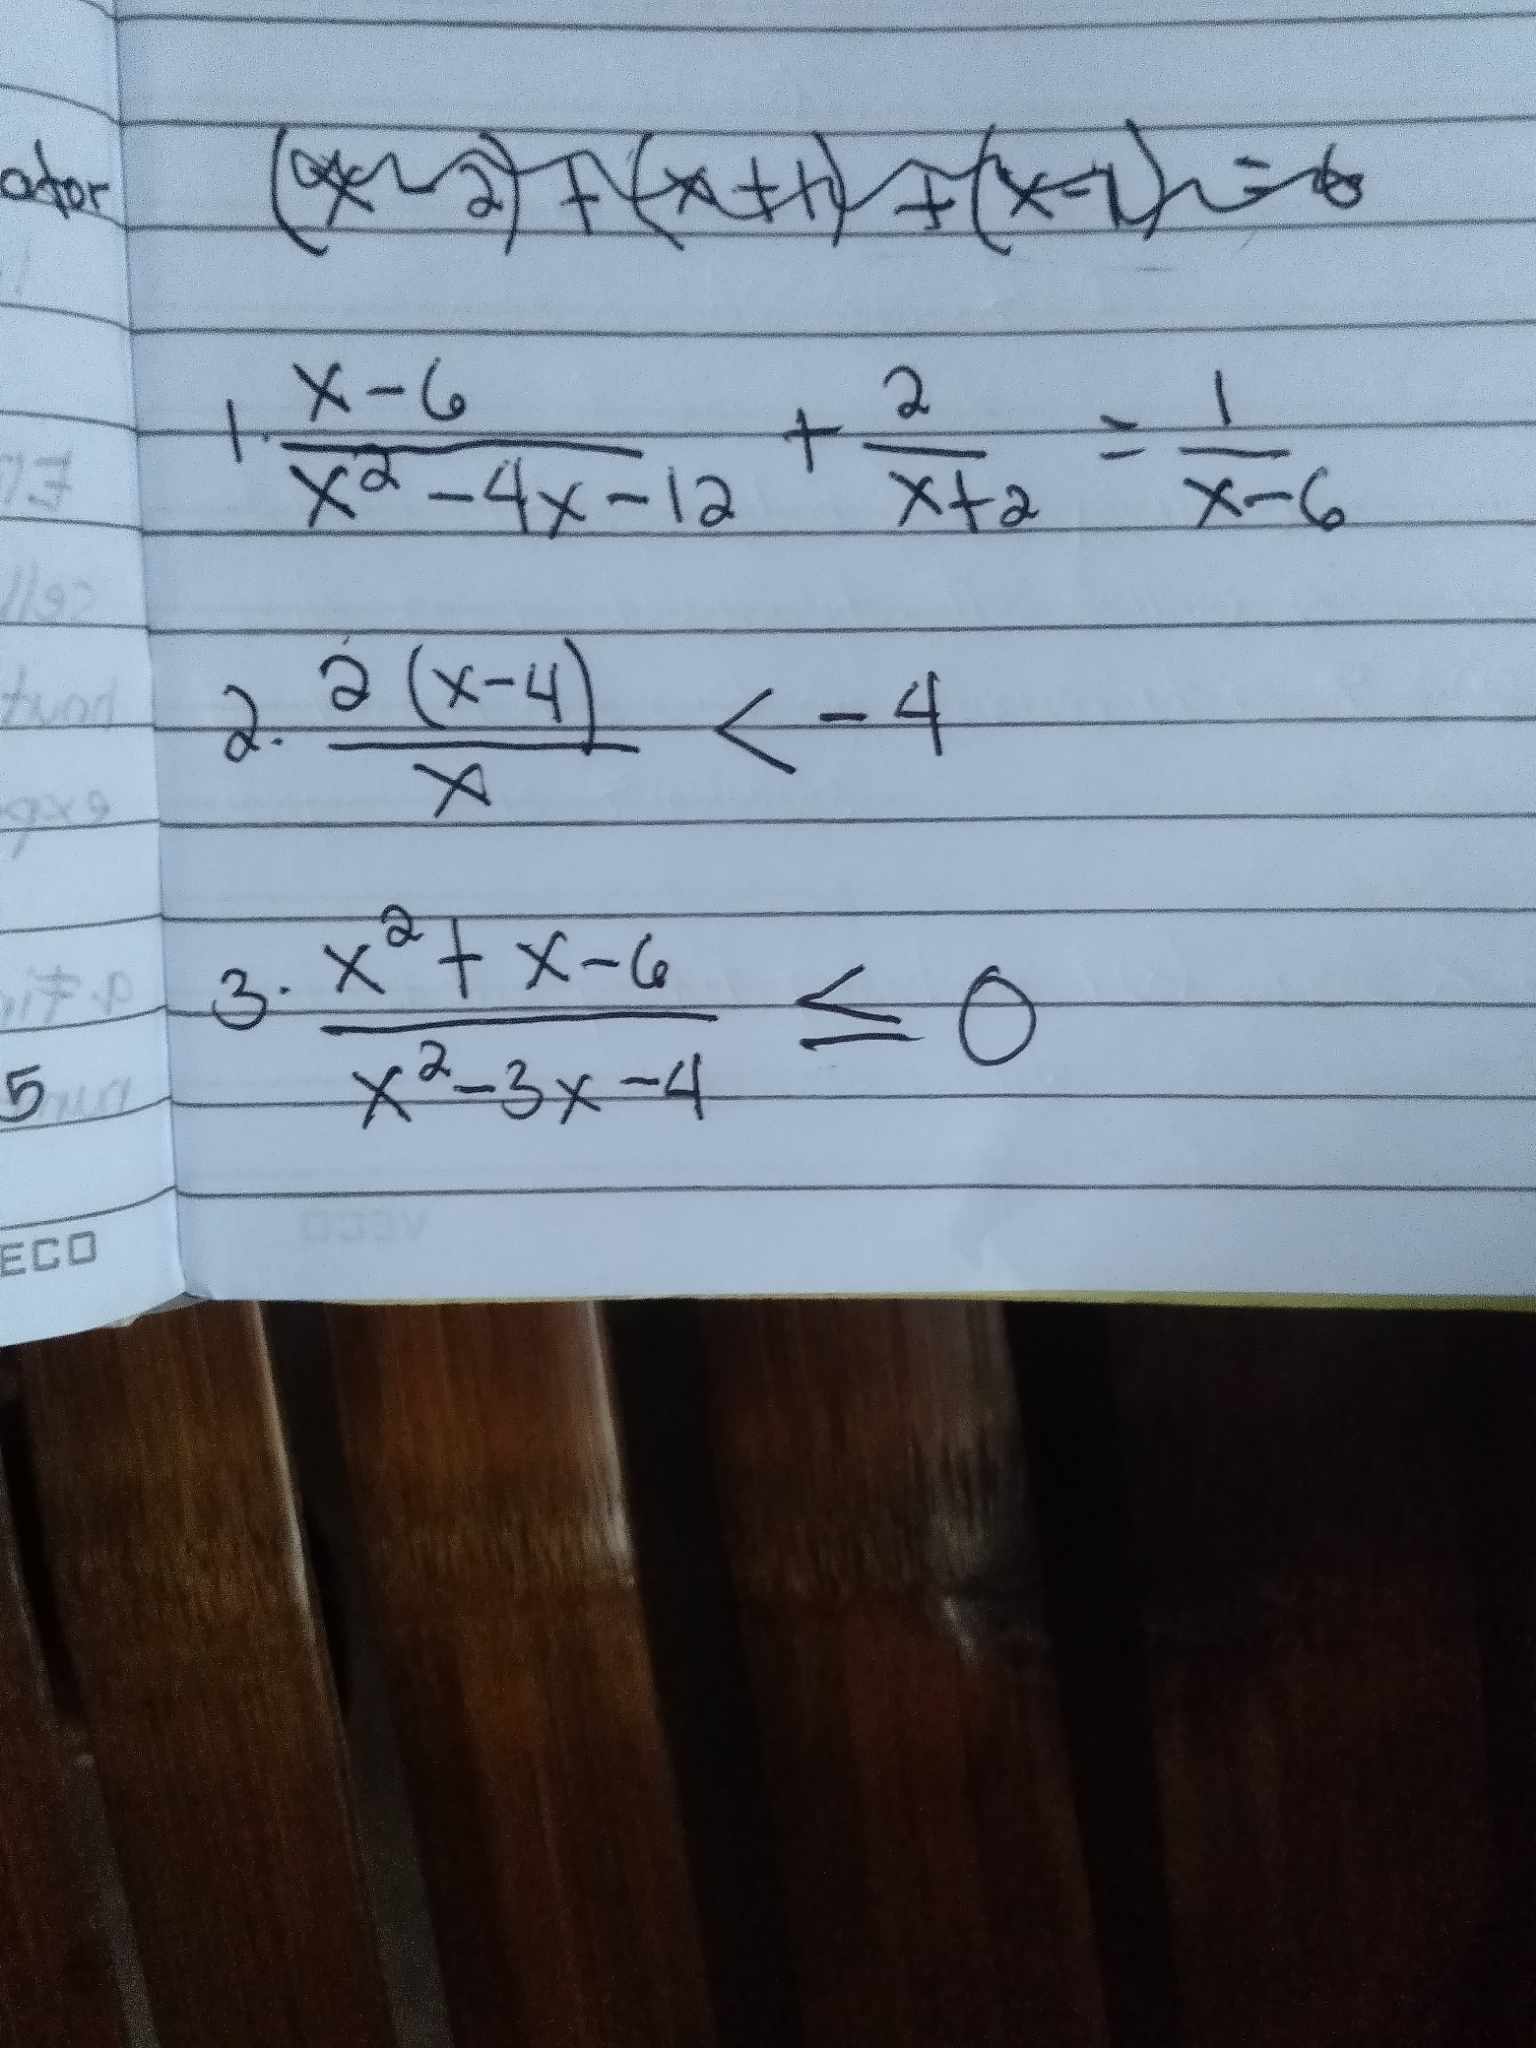 ator
(x-2) + (x+1) + (x-1) = 6
1. x-6 / x² - 4x - 12 + 2 / x+2 = 1 / x-6
2. 2 (x-4) / x < -4
3. x² + x - 6 / x² - 3x - 4 ≤ 0
5
ECO